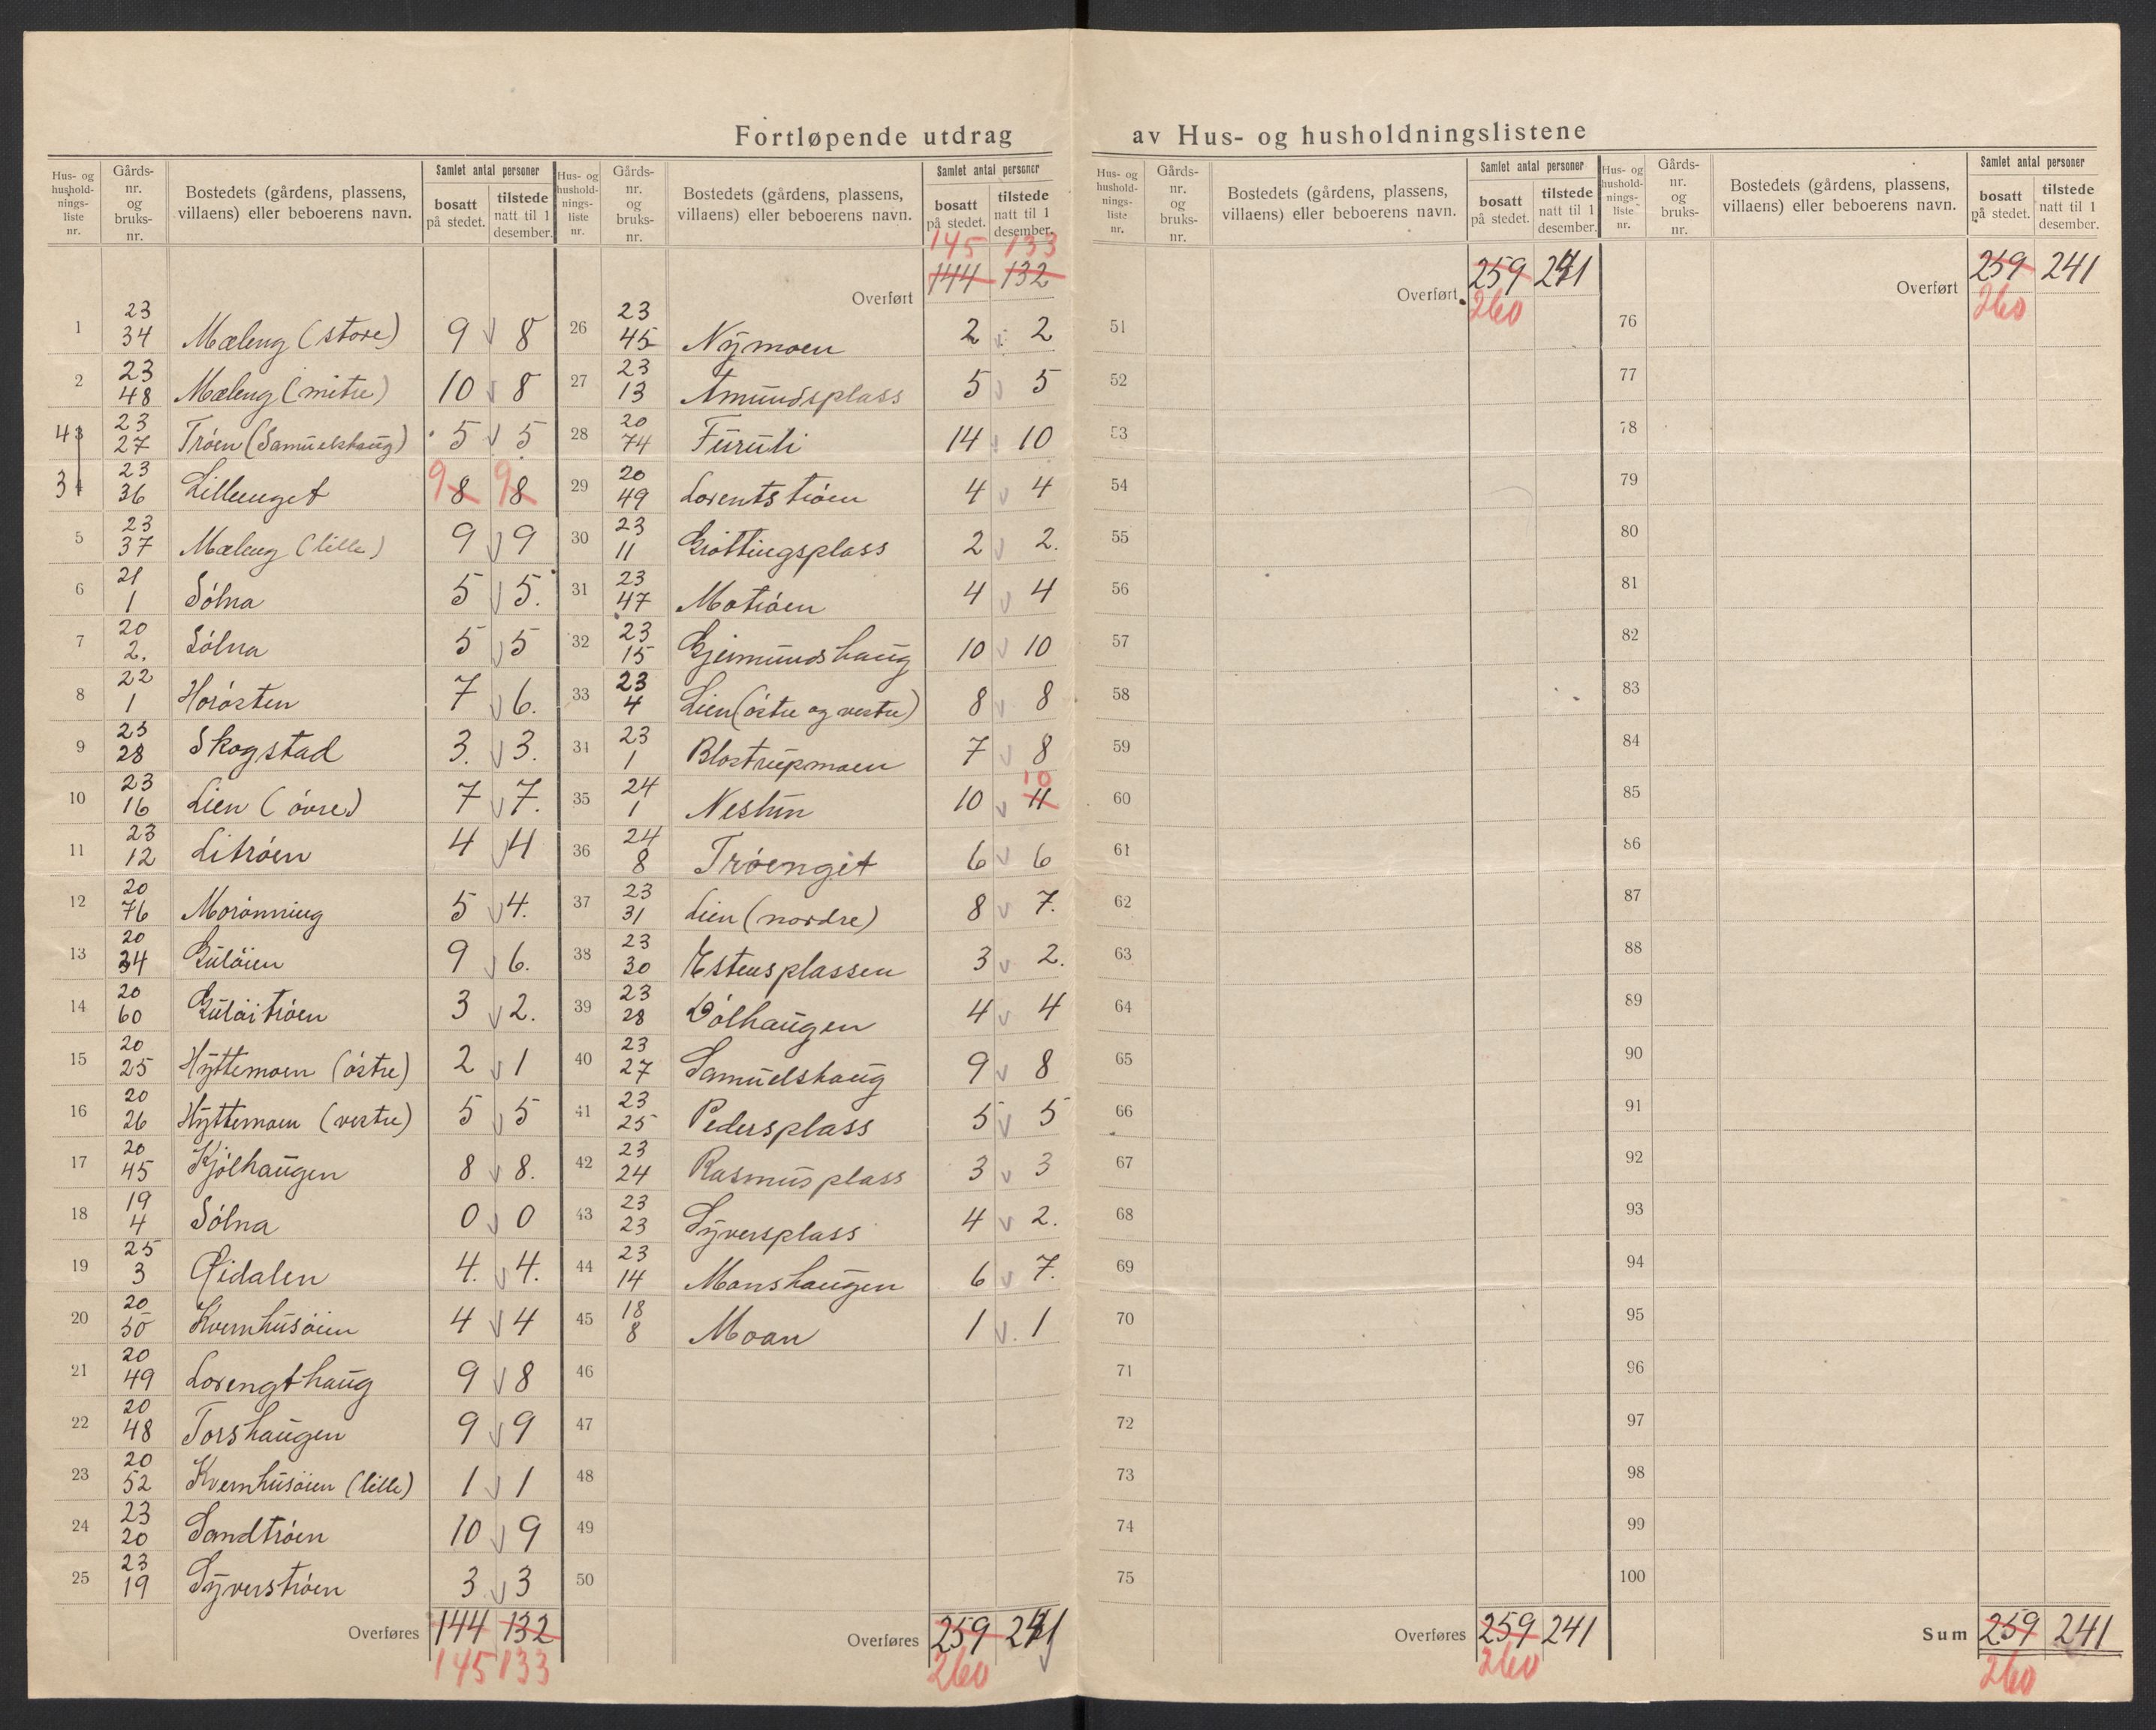 Fortløpende utdrag av Hus- og husholdningslistene
Hus- og hushold-nings-liste nr. | Gårds-nr. og bruks-nr. | Bostedets (gårdens, plassens, villaens) eller beboerens navn. | Samlet antal personer | bosatt på stedet. | tilstede natt til 1 desember.
1 | 23 34 | Mæleng (store) | 9 | 8
2 | 23 48 | Mæleng (mitre) | 10 | 8
4 3 | 23 27 | Trøen (Samuelshaug) | 5 | 5
3 4 | 23 36 | Lillenget | 9 8 | 9 8
5 | 23 37 | Mæleng (lille) | 9 | 9
6 | 21 1 | Sólna | 5 | 5.
7 | 20 2. | Sólna | 5 | 5
8 | 22 1 | Horósten | 7 | 6.
9 | 23 28 | Skogstad | 3. | 3.
10 | 23 16 | Lien (óvre) | 7 | 7.
11 | 23 12 | Litróen | 4 | 4
12 | 20 76 | Morónning | 5 | 4.
13 | 20 34 | Gulöien | 9 | 6.
14 | 20 60 | Gulöitróen | 3 | 2.
15 | 20 25 | Hyttemoen (óstre) | 2 | 1
16 | 20 26 | Hyttemoen (vestre) | 5 | 5
17 | 20 45 | Kjólhaugen | 8 | 8.
18 | 19 4 | Sólna | 0 | 0
19 | 25 3 | 4. | 4.
20 | 20 50 | Kvernhusöien | 4 | 4
21 | 20 49 | Lorengthaug | 9 | 8
22 | 20 48 | Torshaugen | 9 | 9
23 | 20 52 | Kvernhusöien (lille) | 1 | 1
24 | 23 20 | Sandtróen | 10 | 9
25 | 23 19 | Syverstróen | 3 | 3
Overføres | 144 | 132
145 | 133
Hus- og hushold-nings-liste nr. | Gårds-nr. og bruks-nr. | Bostedets (gårdens, plassens, villaens) eller beboerens navn. | Samlet antal personer | bosatt på stedet. | tilstede natt til 1 desember.
145 | 133
Overført | 144 | 132
26 | 23 45 | Nymoen | 2 | 2
27 | 23 13 | Amundsplass | 5 | 5
28 | 20 74 | Furuli | 14 | 10
29 | 20 49 | Lorentstróen | 4 | 4
30 | 23 11 | Gróttingsplass | 2 | 2.
31 | 23 47 | Motróen | 4 | 4
32 | 23 15 | Gjeimundshaug | 10 | 10
33 | 23 4 | Lien (óstre og vestre) | 8 | 8
34 | 23 1 | Blostrupmoen | 7 | 8
35 | 24 1 | 10 | 10 11
36 | 24 8 | Tróenget | 6 | 6
37 | 23 31 | Lien (nordre) | 8 | 7.
38 | 23 30 | Estensplassen | 3 | 2.
39 | 23 28 | Dólhaugen | 4 | 4
40 | 23 27 | Samuelshaug | 9 | 8
41 | 23 25 | Pedersplass | 5 | 5
42 | 23 24 | Rasmusplass | 3 | 3
43 | 23 23 | Syversplass | 4 | 2.
44 | 23 14 | Monshaugen | 6 | 7.
45 | 18 8 | Moan | 1 | 1
46
47
48
49
50
Overføres | 259 | 241
260
Hus- og hushold-nings-liste nr. | Gårds-nr. og bruks-nr. | Bostedets (gårdens, plassens, villaens) eller beboerens navn. | Samlet antal personer | bosatt på stedet. | tilstede natt til 1 desember.
Overført | 259 | 241
260
51
52
53
54
55
56
57
58
59
60
61
62
63
64
65
66
67
68
69
70
71
72
73
74
75
Overføres | 259 | 241
260
Hus- og hushold-nings-liste nr. | Gårds-nr. og bruks-nr. | Bostedets (gårdens, plassens, villaens) eller beboerens navn. | Samlet antal personer | bosatt på stedet. | tilstede natt til 1 desember.
Overført | 259 | 241
260
76
77
78
79
80
81
82
83
84
85
86
87
88
89
90
91
92
93
94
95
96
97
98
99
100
Sum | 259 | 241
260